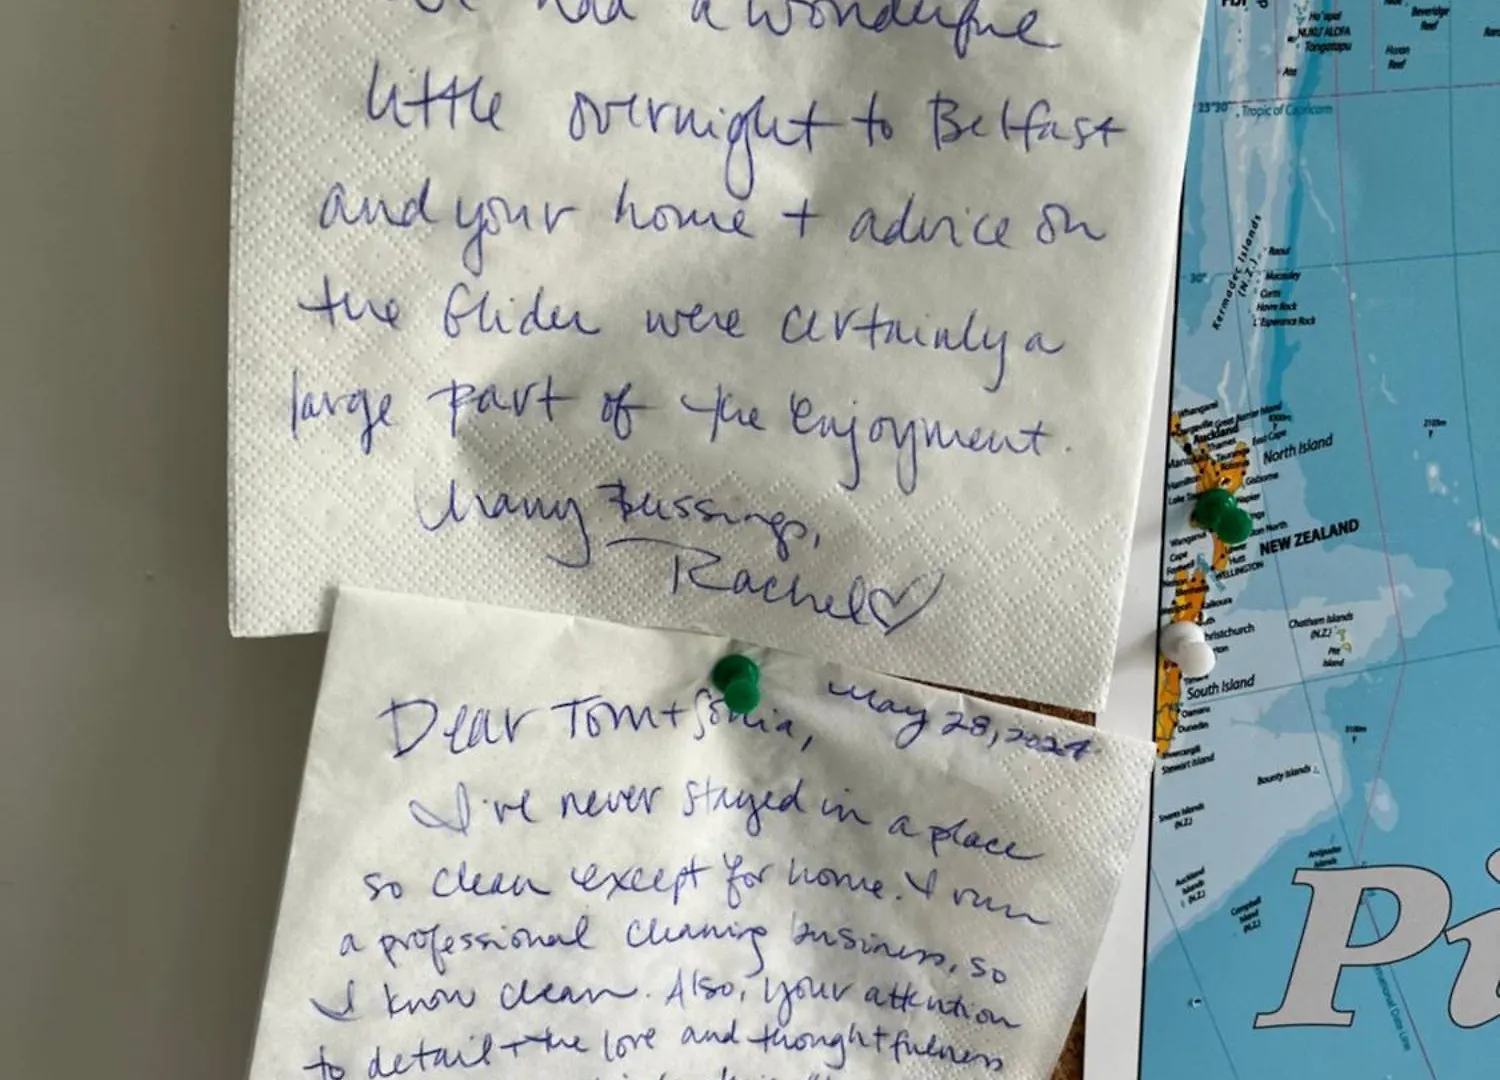 had a wonderful
little overnight to Belfast
and your home + advice on
the Glider were certainly a
large part of the enjoyment.
Many Blessings,
Rachel♡
Dear Tom + Sonia,
May 28, 2024
I've never stayed in a place
so clean except for home. I run
a professional cleaning business, so
I know clean. Also, your attention
to detail + the love and thoughtfulness
NUKU'ALOFA
Tongatapu
Ata
Haran
Reef
Beveridge
Reef
23°30'
Tropic of Capricorn
30°
Kermadec Islands
(N.Z.)
Raoul
Macauley
Curtis
Havre Rock
L'Esperance Rock
Whangarei
Auckland
East Cape
North Island
Hamilton
Gisborne
Napier
NEW ZEALAND
WELLINGTON
Kaikoura
Chatham Islands
(N.Z.)
Pitt
Island
South Island
Oamaru
Dunedin
Invercargill
Stewart Island
Bounty Islands
Snares Islands
(N.Z.)
Antipodes
Islands
Auckland
Islands
(N.Z.)
Campbell
Island
(N.Z.)
Pi